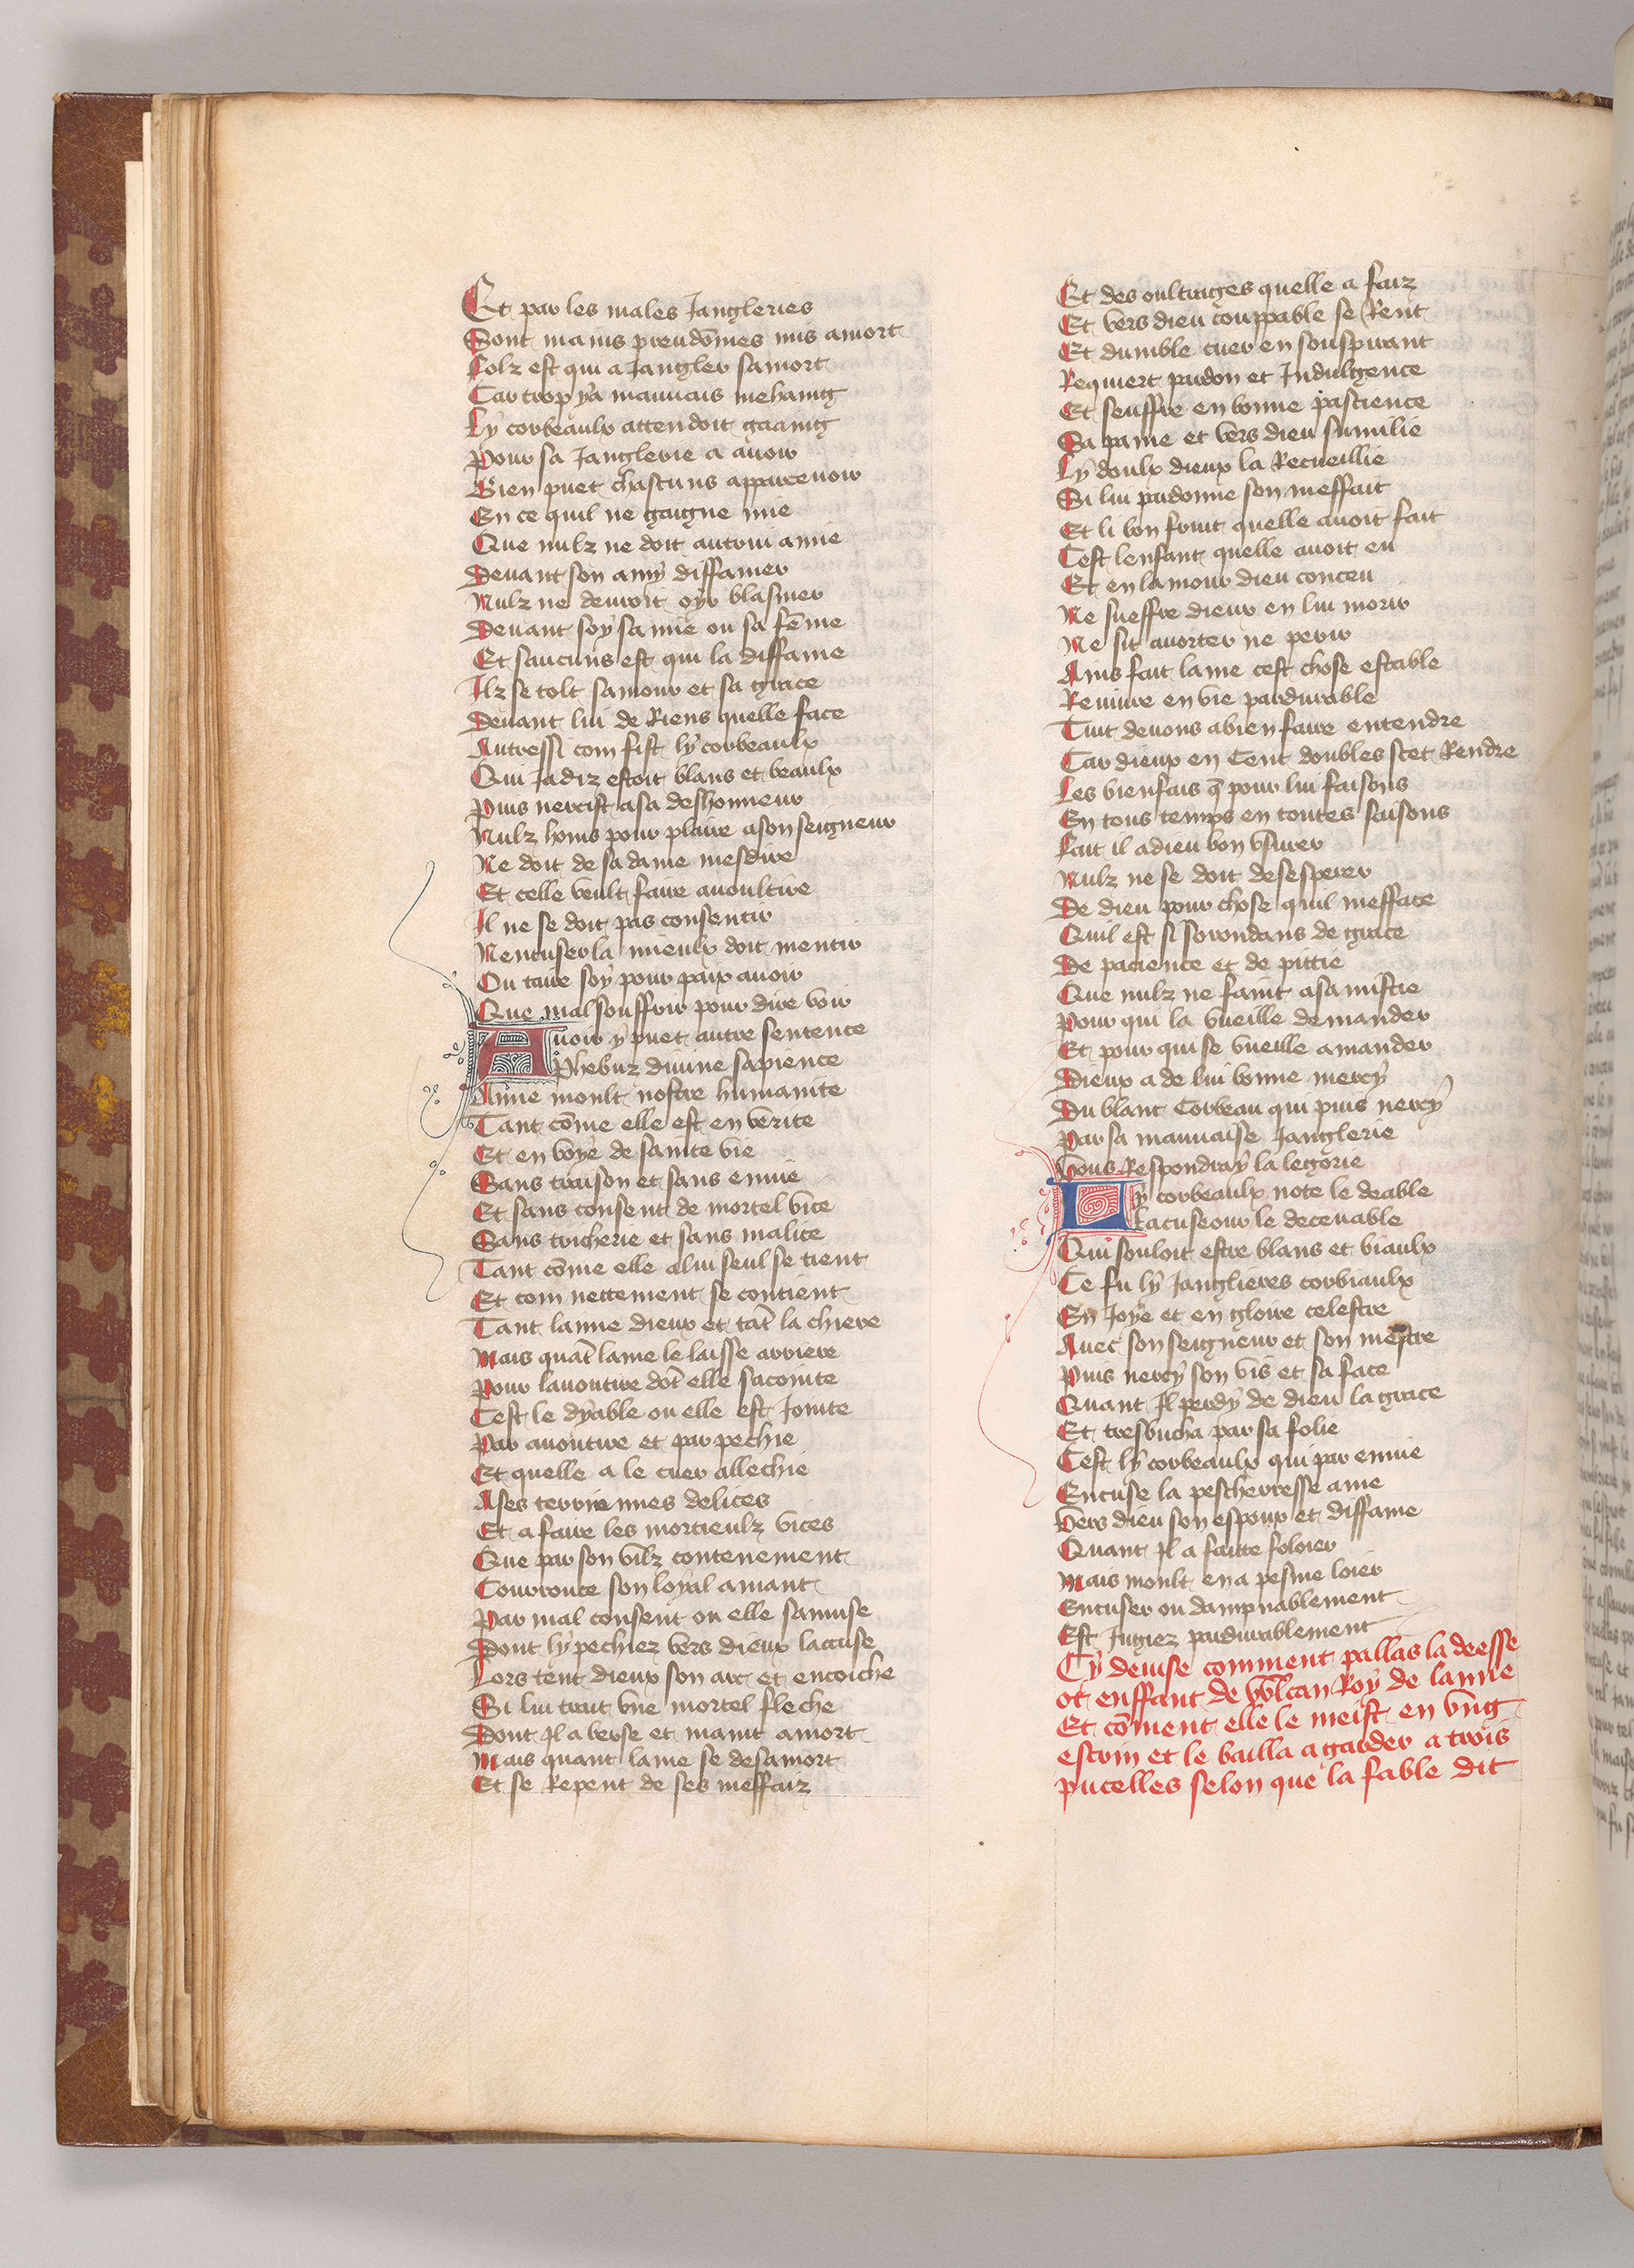 Et par les males Jangleries
Sont mains preudõmes mis amort
Folz est qui a Jangler samort
Car trop ya mauuais mehaing
Ly corbeaulx attendoit gaaing
Pour sa Janglerie a auoir
Bien puet chascuns apparceuoir
En ce quil ne gaigne mie
Que nulz ne doit autrui amie
Deuant son amy diffamer
Nulz ne deuroit oyr blasmer
Deuant soy samie ou sa fẽme
Et saucuns est qui la diffame
Ilz se tolt samour et sa grace
Deuant lui de Riens quelle face
Autressi com fist ly corbeaulx
Qui Jadiz estoit blans et beaulx
Puis nercist asa deshonneur
Nulz homs pour plaire ason seigneur
Ne doit de sa dame mesdire
Et celle veult faire auoultire
Il ne se doit pas consentir
Nencuser la mieulx doit mentir
Ou taire soy pour paix auoir
Que mal souffrir pour dire voir
Auoir y puet autre sentence
Phebuz diuine sapience
Aime moult nostre humanite
Tant cõme elle est en verite
Et en voye de sainte vie
Sans traison et sans enuie
Et sans consent de mortel vice
Sans tricherie et sans malice
Tant cõme elle alui seul se tient
Et com nettement se contient
Tant lanne dieux et tãt la chiere
Mais quãt lame le laisse arriere
Pour lauoutire dõt elle sacointe
Cest le dyable ou elle est Jointe
Par auoutire et par pechie
Et quelle a le cuer allechie
Ases terriennes delices
Et a faire les mortieulz vices
Que par son vilz contenement
Courrouce son loyal amant
Par mal consent ou elle samuse
Dont ly pechiez vers dieux laccuse
Lors tent dieux son arc et encoiche
Si lui trait vne mortel fleche
Dont Il a verse et maint amort
Mais quant lame se desamort
Et se Repent de ses meffaiz
Et des oultrages quelle a faiz
Et vers dieu couppable se Rent
Et dumble cuer en souspirant
Requiert pardon et Indulgence
Et seuffre en bonne pascience
Sa paine et vers dieu sumilie
Ly doulx dieux la Recueillie
Si lui pardonne son meffait
Et li bon fruit quelle auoit fait
Cest lenfant quelle auoit eu
Et en lamour dieu conceu
Ne sueffre dieux en lui morir
Ne sit auorter ne perir
Ains fait lame cest chose estable
Reuiure en vie pardurable
Tuit deuons abien faire entendre
Car dieux en Cent doubles scet Rendre
Les bienfais q̃ pour lui faisons
En tous temps en toutes saisons
Fait il adieu bon vsurer
Nulz ne se doit desesperer
De dieu pour chose quil mefface
Quil est si sorondans de grace
De pacience et de pittie
Que nulz ne faint asamistie
Pour qui la vueille demander
Et pour qui se vueille amander
Dieux a de lui bonne mercy
Du blanc Corbeau qui puis nercy
Par sa mauuaise Janglerie
Vous Respondray lalegorie
Ly corbeaulx note le deable
Lacuseour le deceuable
Qui souloit estre blans et biaulx
Ce fu ly Janglieres corbiaulx
En Joye et en gloire celestre
Auec son seigneur et son mestre
Puis nercy son vis et sa face
Quant Il perdy de dieu la grace
Et tresbucha par sa folie
Cest ly corbeaulx qui par enuie
Encuse la pescherresse ame
Vers dieu son espoux et diffame
Quant Il a faicte foloier
Mais moult en a pesme loier
Encuser ou dampnablement
Est Jugiez pardurablement
Cy deuise comment pallas la deesse
ot enffant de vulcan Roy de lanne
Et cõment elle le meist en vng
escrin et le bailla agarder a trois
pucelles selon que la fable dit